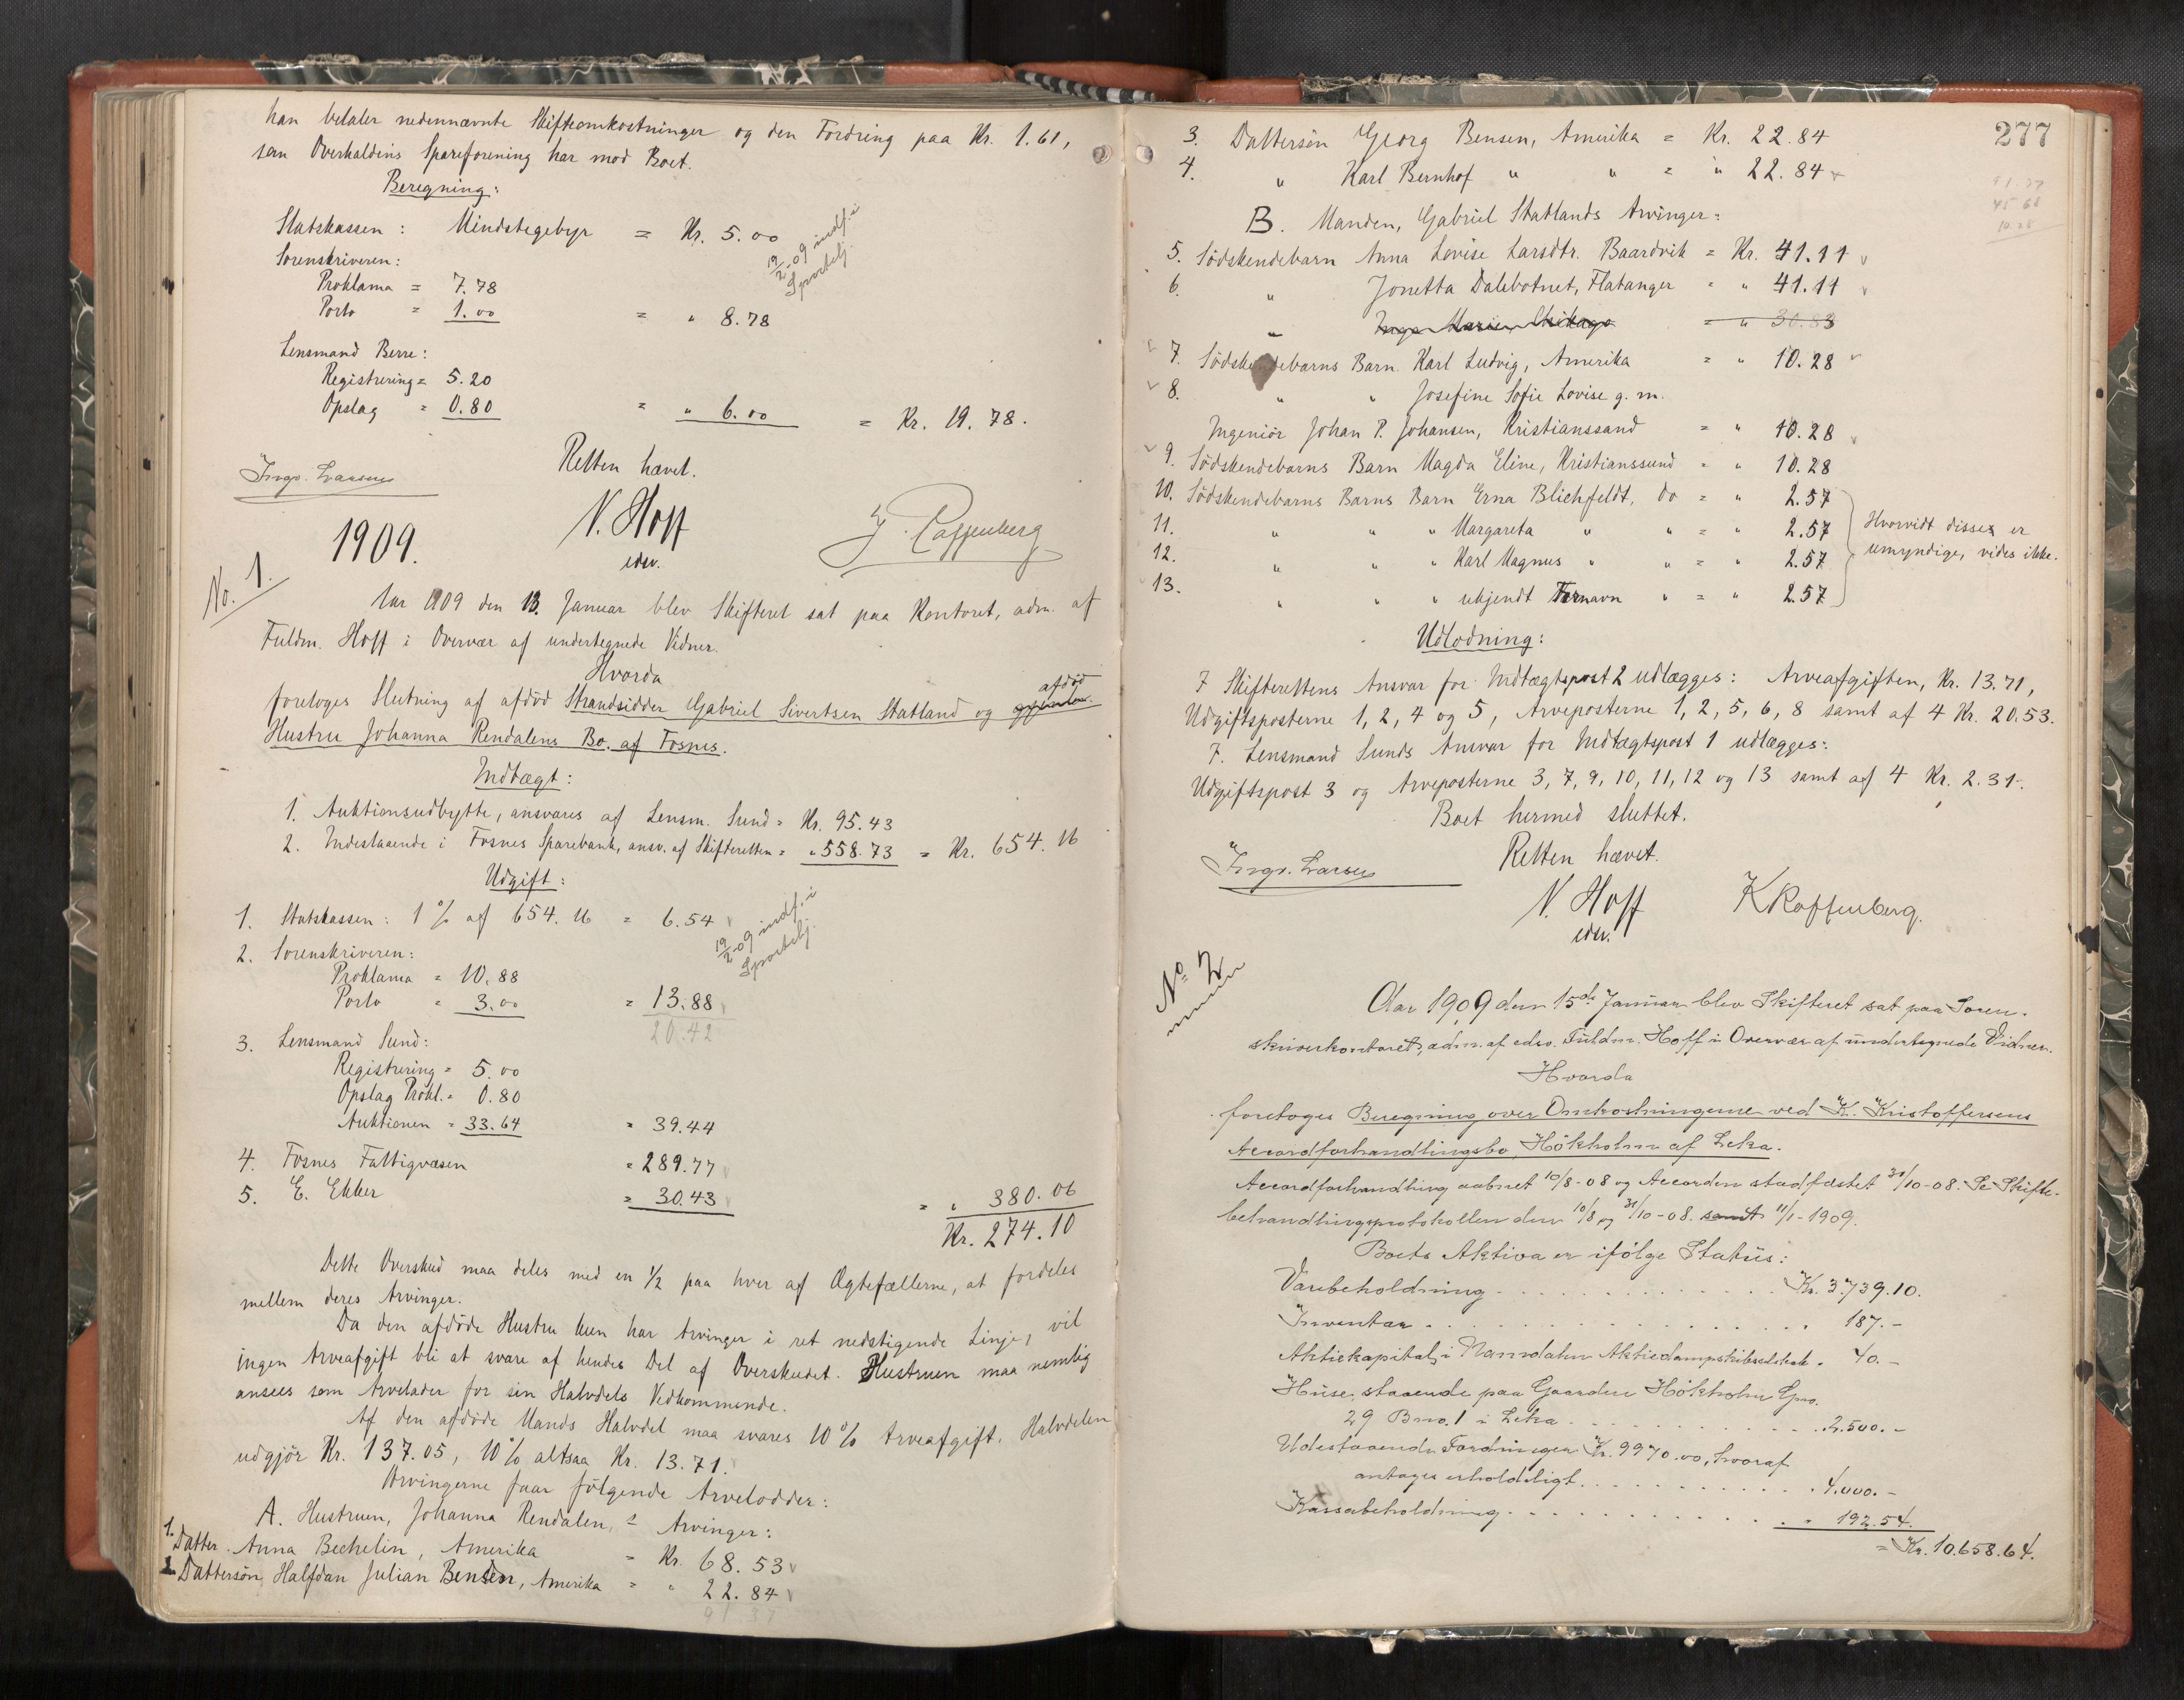 han betaler nedennævnte Skifteomkostninger og den Fordring paa Kr. 1.61,
som Overhaldens Spareforening har mod Boet.
Beregning:
Statskassen: Mindstegebyr = Kr. 5.00
19/2-09 indf. i
Sportelj.
Sorenskriveren:
Proklama = 7.78
Porto = 1.00 = " 8.78
Lensmand Berre:
Registrering = 5.20
Opslag = 0.80 = " 6.00 = Kr. 19.78.
Retten hævet.
Ingv. Larsen
N. Hoff
edsv.
1909.
No. 1.
Aar 1909 den 13. Januar blev Skifteret sat paa Kontoret, adm. af
Fuldm. Hoff i Overvær af undertegnede Vidner.
Hvorda
afdød
foretoges Slutning af afdød Strandsidder Gabriel Sivertsen Statland og
Hustru Johanna Rendalens Bo af Fosnes.
Indtægt:
1. Auktionsudbytte, ansvares af Lensm. Sund = Kr. 95.43
2. Indestaaende i Fosnes Sparebank, ansv. af Skifteretten = " 558.73 = Kr. 654.16
Udgift:
1. Statskassen: 1 % af 654.16 = 6.54
19/2-09 indf. i
Sportelj.
2. Sorenskriveren:
Proklama = 10.88
Porto = 3.00 = 13.88
20.42
3. Lensmand Sund:
Registrering = 5.00
Opslag Prokl. = 0.80
Auktionen = 33.64 = 39.44
4. Fosnes Fattigvæsen = 289.77
5. E. Ekker = 30.43 = " 380.06
Kr. 274.10
Dette Overskud maa deles med en 1/2 paa hver af Ægtefællerne, at fordeles
mellem deres Arvinger.
Da den afdøde Hustru kun har Arvinger i ret nedstigende Linje, vil
ingen Arveafgift bli at svare af hendes Del af Overskudet. Hustruen maa nemlig
ansees som Arvelader for sin Halvdels Vedkommende.
Af den afdøde Mands Halvdel maa svares 10 % Arveafgift. Halvdelen
udgjør Kr. 137.05, 10 % altsaa Kr. 13.71.
Arvingerne faar følgende Arvelodder:
A. Hustruen, Johanna Rendalens Arvinger:
1. Datter Anna Bechelin, Amerika = Kr. 68.53
2. Dattersøn Halfdan Julian Bensen, Amerika = " 22.84
277
3. Dattersøn Georg Bensen, Amerika = Kr. 22.84
4. " Karl Bernhof " " = " 22.84
B. Manden, Gabriel Statlands Arvinger:
5. Södskendebarn Anna Lovise Larsdtr. Baardvik = Kr. 41.11
6. " Jonetta Dalebotnet, Flatanger = " 41.11
" Inga Marie Chikago = " 30.83
7. Södskendebarns Barn Karl Ludvig, Amerika = " 10.28
8. " " Josefine Sofie Lovise g. m.
Ingeniör Johan P. Johansen, Kristianssand = " 10.28
9. Södskendebarns Barn Magda Eline, Kristianssund = " 10.28
10. Södskendebarns Barns Barn Erna Blichfeldt, do = " 2.57
11. " " " Margareta " " = " 2.57
12. " " " Karl Magnus " " = " 2.57
13. " " " ukjendt Fornavn " = " 2.57
Hvorvidt disse er
umyndige, vides ikke.
Udlodning:
F Skifterettens Ansvar for Indtægtspost 2 udlægges: Arveafgiften, Kr. 13.71,
Udgiftsposterne 1, 2, 4 og 5, Arveposterne 1, 2, 5, 6, 8 samt af 4 Kr. 20.53.
F. Lensmand Sunds Ansvar for Indtægtspost 1 udlægges:
Udgiftspost 3 og Arveposterne 3, 7, 9, 10, 11, 12 og 13 samt af 4 Kr. 2.31.
Boet hermed sluttet.
Retten hævet.
Ingv. Larsen
N. Hoff
edsv.
No 2
Aar 1909 den 15de Januar blev Skifteret sat paa Soren-
skriverkontoret, adm. af edsv. Fuldm. Hoff i Overvær af undertegnede Vidner.
Hvorda
foretoges Beregning over Omkostningerne ved K. Kristoffersens
Accordforhandlingsbo, Hökholm af Leka.
Accordforhandling aabnet 10/8-08 og Accorden stadfæstet 31/10-08. Se Skifte-
behandlingsprotokollen den 10/8 og 31/10-08. samt 11/1-1909.
Boets Aktiva er ifølge Status:
Varebeholdning Kr. 3.739.10.
Inventar 187.-
Aktiekapital i Namdalens Aktiedampskibsselskab 40.-
Huse, staaende paa Gaarden Hökholm Gno.
29 Bno. 1 i Leka 2.500.-
Udestaaende Fordringer Kr. 9970.00, hvoraf
antages erholdeligt 4.000.-
Kassabeholdning 192.54.
= Kr. 10.658.64.